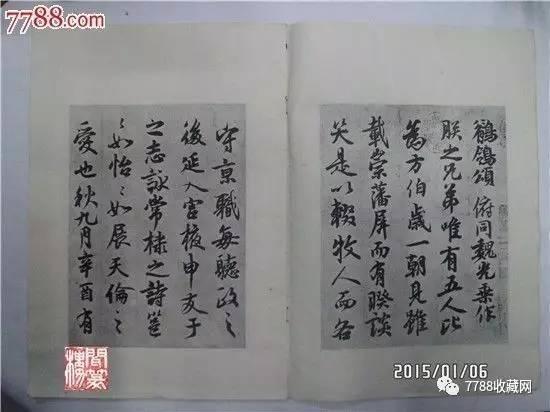 7788.com
鶺鴒頌 俯同魏光乘作
朕之兄弟唯有五人比
為方伯歲一朝見雖
載崇藩屏而有睽談
笑是以輟牧人而各
守京職每聽政之
後延入宮掖申友于
之志詠常棣之詩邕
〻如怡〻如展天倫之
愛也秋九月辛酉有
2015/01/06
7788收藏网